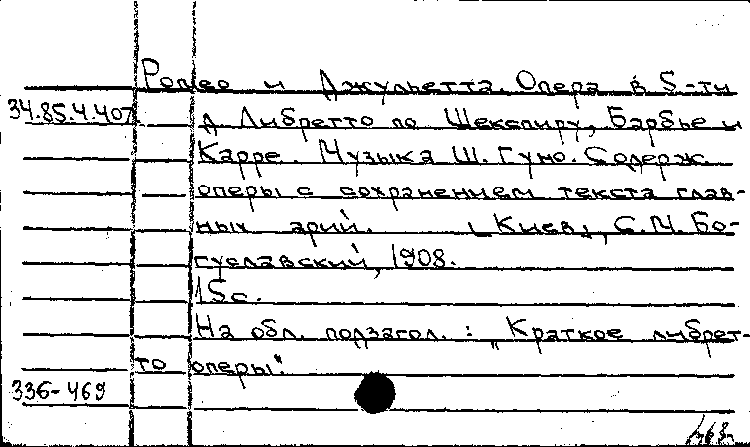 Ромео и Джульетта. Опера в 5-ти
34.85.4.407 д Либретто по Шекспиру, Барбье и
Карре. Музыка Ш. Гуно. Содерж.
оперы с сохранением текста глав-
ных арий. [Киев], С.М. Бо-
гуславский, 1908.
15с.
На обл. подзагол.: "Краткое либрет-
то оперы".
336-469